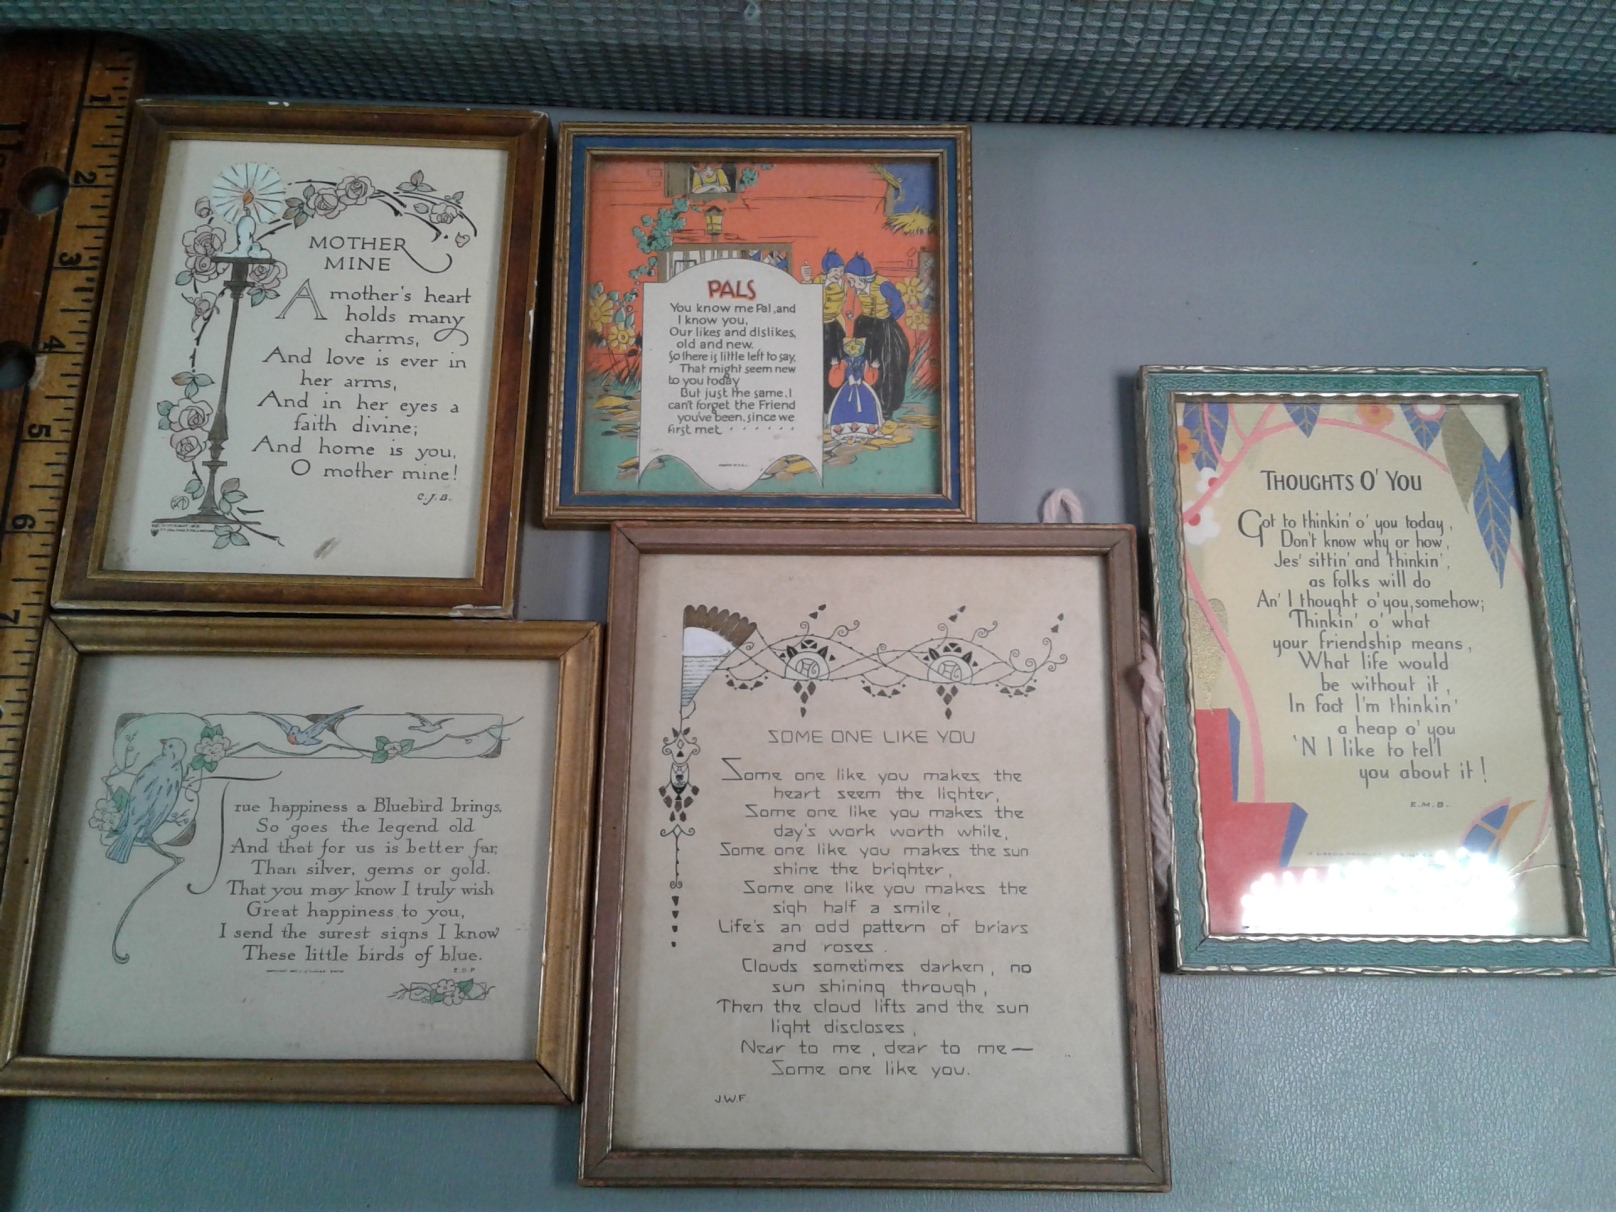 1
2
3
4
5
6
7
MOTHER
MINE
A mother's heart
holds many
charms,
And love is ever in
her arms,
And in her eyes a
faith divine;
And home is you,
O mother mine!
C.J.B.
PALS
You know me Pal, and
I know you,
Our likes and dislikes,
old and new.
So there is little left to say,
That might seem new
to you today
But just the same, I
can't forget the Friend
you've been, since we
first met . . . . . .
THOUGHTS O' YOU
Got to thinkin' o' you today,
Don't know why or how,
Jes' sittin' and thinkin',
as folks will do
An' I thought o' you, somehow;
Thinkin' o' what
your friendship means,
What life would
be without it,
In fact I'm thinkin'
a heap o' you
'N I like to tell
you about it!
E.M.B.
True happiness a Bluebird brings,
So goes the legend old
And that for us is better far,
Than silver, gems or gold.
That you may know I truly wish
Great happiness to you,
I send the surest signs I know
These little birds of blue.
E.D.P.
SOME ONE LIKE YOU
Some one like you makes the
heart seem the lighter,
Some one like you makes the
day's work worth while,
Some one like you makes the sun
shine the brighter,
Some one like you makes the
sigh half a smile,
Life's an odd pattern of briars
and roses.
Clouds sometimes darken, no
sun shining through,
Then the cloud lifts and the sun
light discloses,
Near to me, dear to me—
Some one like you.
J.W.F.